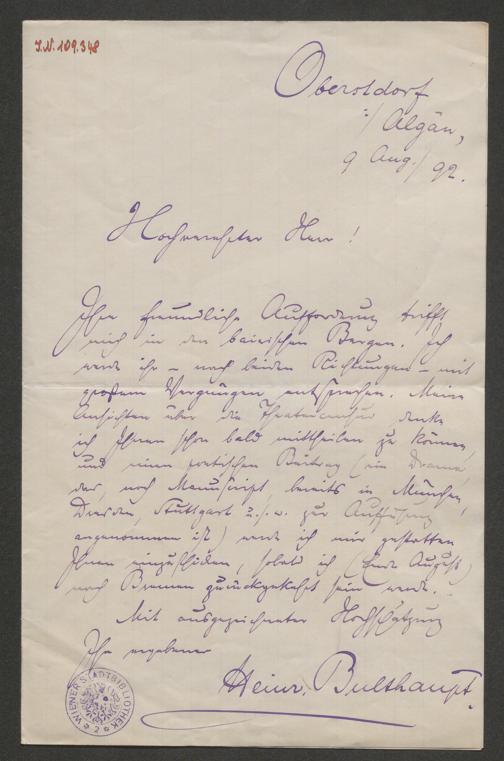 J.N. 109.348
Oberstdorf
i/ Algäu,
9 Aug./ 92.
Hochverehrter Herr!
Ihre freundliche Aufforderung trifft
mich in den bairischen Bergen. Ich
werde ihr – nach beiden Richtungen – mit
großem Vergnügen entsprechen. Meine
Ansichten über die Theatercensur denke
ich Ihnen schon bald mittheilen zu können,
und einen poetischen Beitrag (ein Drama,
das, noch Manuscript, bereits in München,
Dresden, Stuttgart u.s.w. zur Aufführung
angenommen ist) werde ich mir gestatten
Ihnen einzuschicken, sobald ich (Ende August)
nach Bremen zurückgekehrt sein werde.
Mit ausgezeichneter Hochschätzung
Ihr ergebener
Heinr. Bulthaupt.
WIENER STADTBIBLIOTHEK